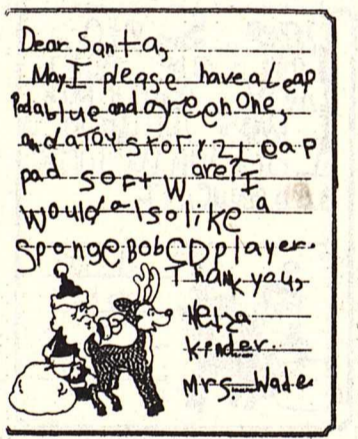 Dear Santa,
May I please have a Leap
Pad a blue and green One,
and a Toy sTory 2 Leap
pad softw are? I
would also like a
SpongeBob CD player.
Thank you,
Netza
Kinder.
Mrs. Wade